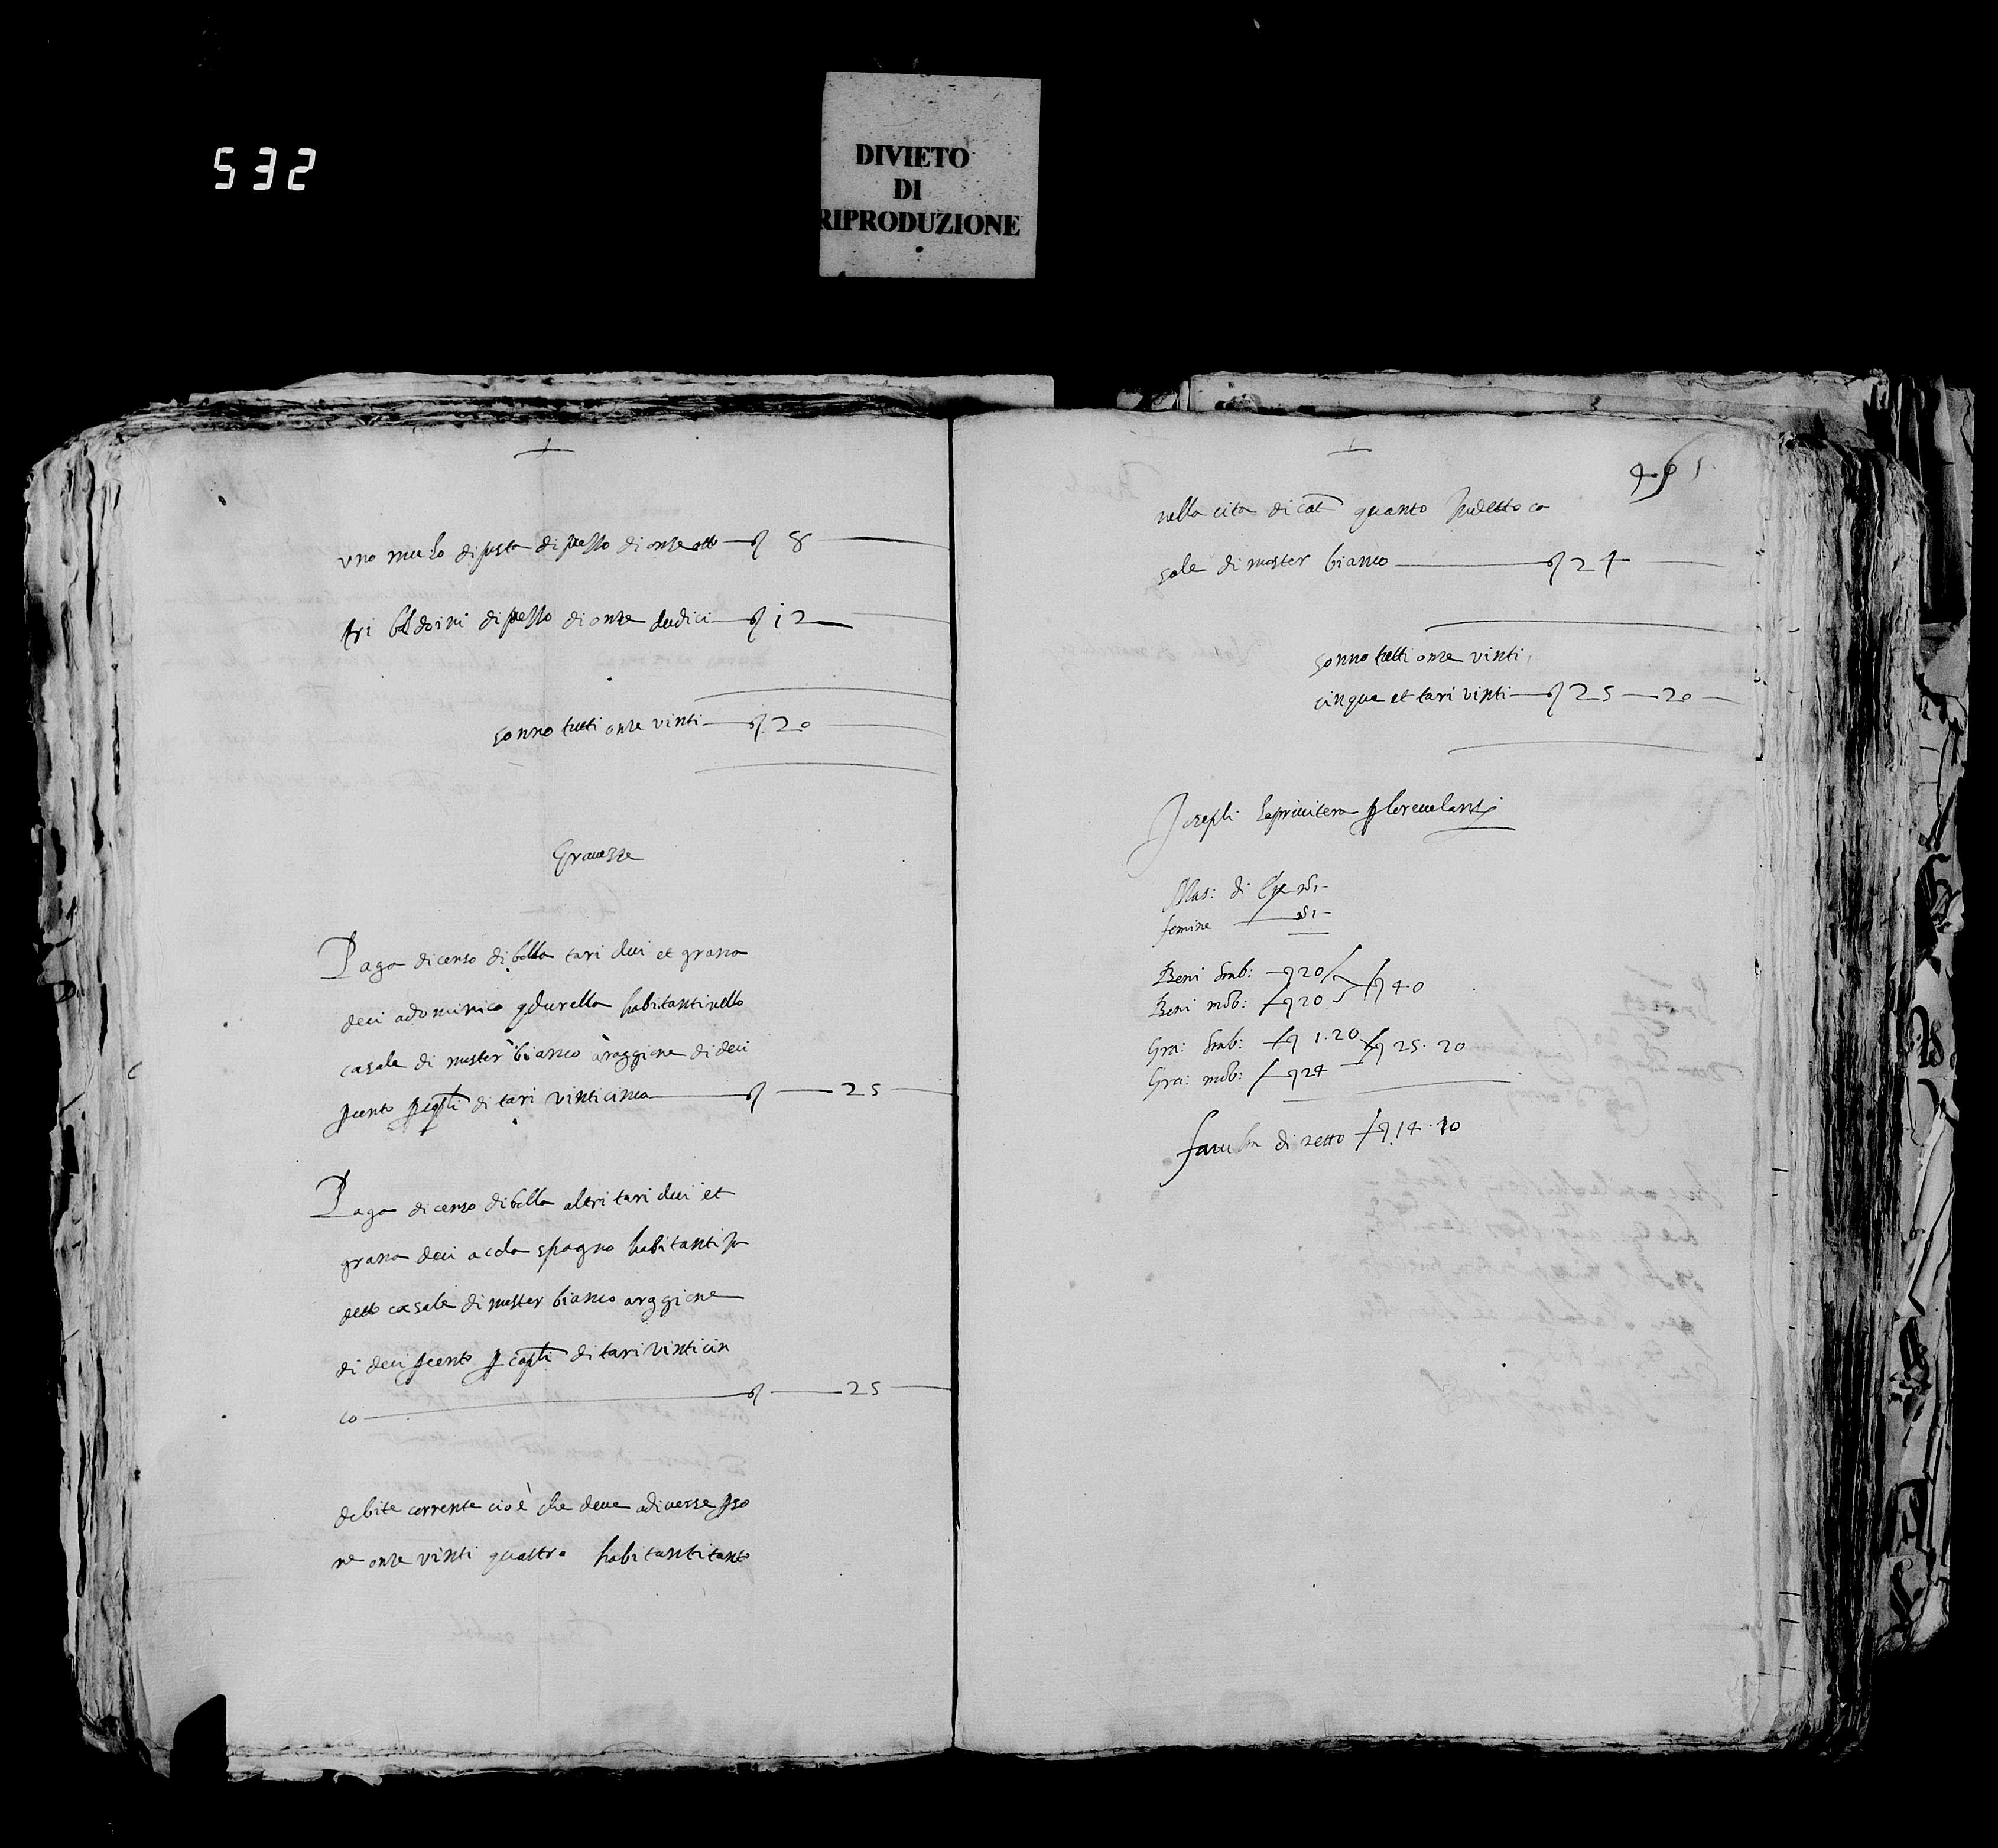 532
DIVIETO
DI
RIPRODUZIONE
uno mulo di sista di prezzo di onze otto — 8
tri baldoini di prezzo di onze dudici — 12
sonno tutti onze vinti — 20
Gravezze
Paga di censo di bolla tari dui et grana
deci a dominico habitanti nello
casale di mister bianco a raggione di deci
p cento p capli di tari vinticinco — 25
Paga di censo di bolla altri tari dui et
grana deci a cola spagno habitanti in
detto casale di mister bianco a raggione
di deci p cento p capli di tari vinticin
co — 25
debite corrente cio è che deve a diverse pso
ne onze vinti quattro habitanti tanto
nella cita di cat quanto in detto ca
sale di mister bianco — 24
sonno tutti onze vinti
cinque et tari vinti — 25 — 20
Joseph laprivitera
Mas: di
femine
Beni stab: 20
Beni mob: 20 40
Gra: stab: 1.20 25.20
Gra: mob: 24
faculta di netto 14.10